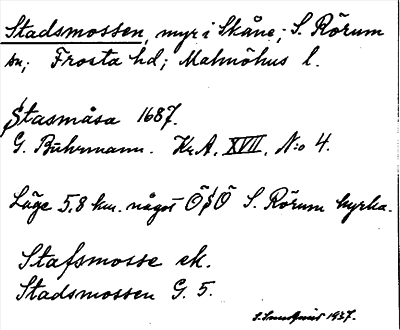 Stadsmossen, myr i Skåne; S. Rörum
sn; Frosta hd; Malmöhus l.
Stasmåsa 1687.
G. Buhrmann. Kr.A. XVII. N:o 4.
Läge 5,8 km. något ÖSÖ S. Rörum kyrka.
Stafsmosse ek.
Stadsmossen G. 5.
S. Sundqvist 1937.